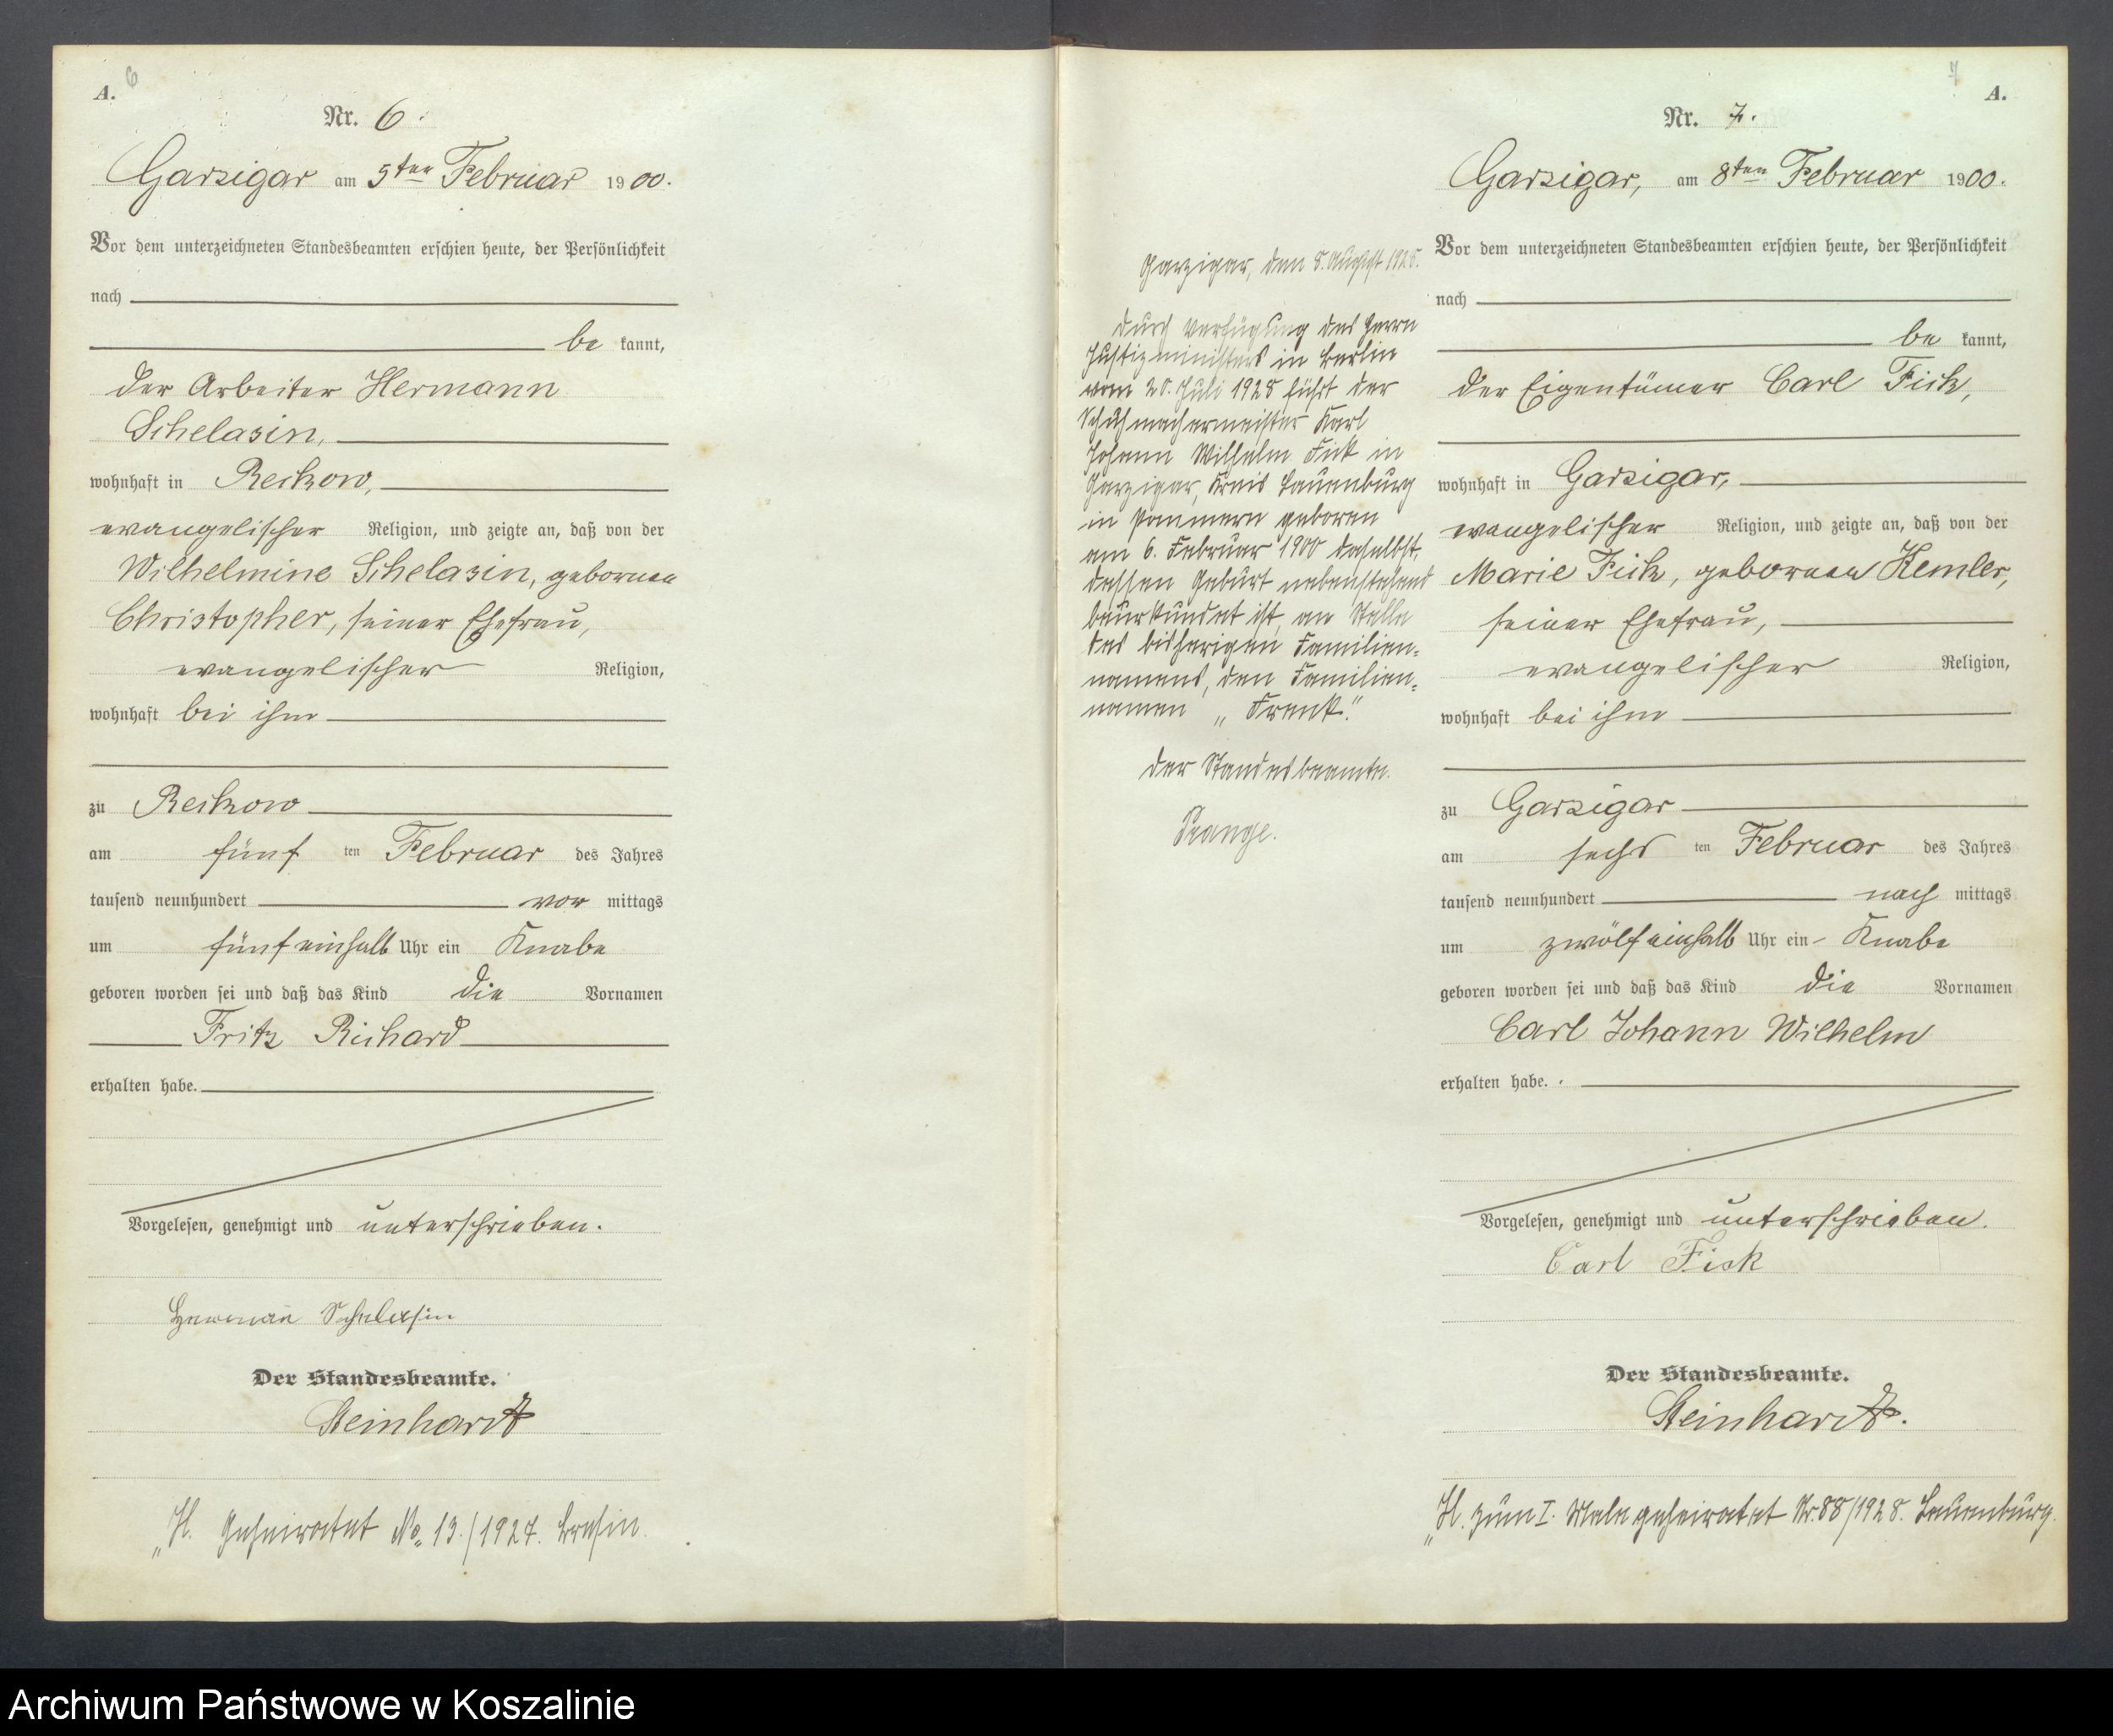 A.
6
Nr. 6.
Garzigar am 5ten Februar 1900.
Vor dem unterzeichneten Standesbeamten erschien heute, der Persönlichkeit
nach
be kannt,
der Arbeiter Hermann
Schelasin,
wohnhaft in Reckow,
evangelischer Religion, und zeigte an, daß von der
Wilhelmine Schelasin, geborenen
Christopher, seiner Ehefrau,
evangelischer Religion,
wohnhaft bei ihm
zu Reckow
am fünf ten Februar des Jahres
tausend neunhundert vor mittags
um fünf einhalb Uhr ein Knabe
geboren worden sei und daß das Kind die Vornamen
Fritz Richard
erhalten habe.
Vorgelesen, genehmigt und unterschrieben.
Herman Schelasin
Der Standesbeamte.
Steinhardt
„H. Geheiratet No. 13./1927. Bresin.
Garzigar, den 8. August 1928.
Durch Verfügung des Herrn
Justizministers in Berlin
vom 20. Juli 1928 führt der
Schuhmachermeister Karl
Johann Wilhelm Fick in
Garzigar, Kreis Lauenburg
in Pommern geboren
am 6. Februar 1900 daselbst,
dessen Geburt nebenstehend
beurkundet ist, an Stelle
des bisherigen Familien-
namens, den Familien-
namen „Frenk."
Der Standesbeamte.
Prange.
7
A.
Nr. 7.
Garzigar, am 8ten Februar 1900.
Vor dem unterzeichneten Standesbeamten erschien heute, der Persönlichkeit
nach
be kannt,
der Eigentümer Carl Fick,
wohnhaft in Garzigar,
evangelischer Religion, und zeigte an, daß von der
Marie Fick, geborenen Kemler,
seiner Ehefrau,
evangelischer Religion,
wohnhaft bei ihm
zu Garzigar
am sechs ten Februar des Jahres
tausend neunhundert nach mittags
um zwölf einhalb Uhr ein Knabe
geboren worden sei und daß das Kind die Vornamen
Carl Johann Wilhelm
erhalten habe.
Vorgelesen, genehmigt und unterschrieben.
Carl Fick
Der Standesbeamte.
Steinhardt.
„H. zum I. Male geheiratet Nr. 88/1928. Lauenburg.
Archiwum Państwowe w Koszalinie